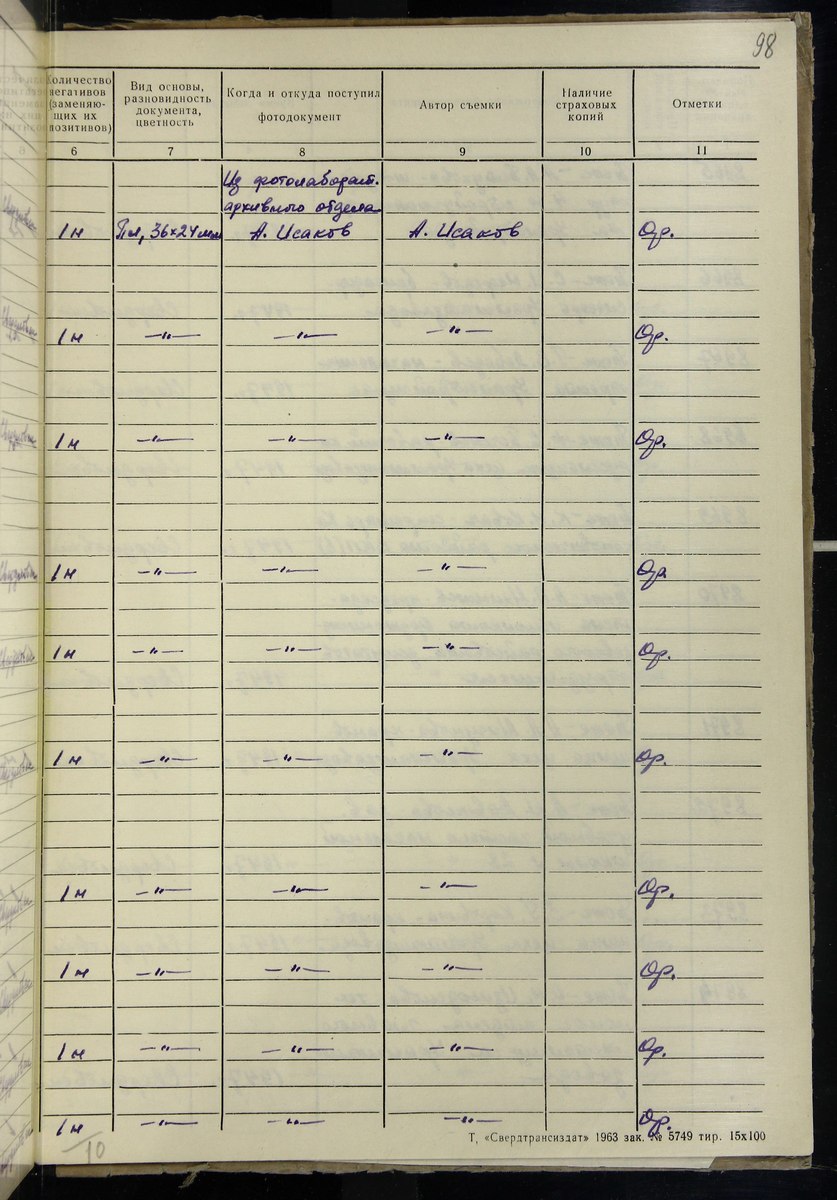 98
Количество негативов (заменяю- щих их позитивов)
Вид основы, разновидность документа, цветность
Когда и откуда поступил фотодокумент
Автор съемки
Наличие страховых копий
Отметки
6 7 8 9 10 11
Из фотолаборат.
архивного отдела
1н Пл, 36×24мм А. Исаков А. Исаков Ор.
1н —"— —"— —"— Ор.
1н —"— —"— —"— Ор.
1н —"— —"— —"— Ор
1н —"— —"— —"— Ор.
1н —"— —"— —"— Ор.
1н —"— —"— —"— Ор.
1н —"— —"— —"— Ор.
1н —"— —"— —"— Ор.
1н —"— —"— —"— Ор.
10
Т, «Свердтрансиздат» 1963 зак. № 5749 тир. 15х100